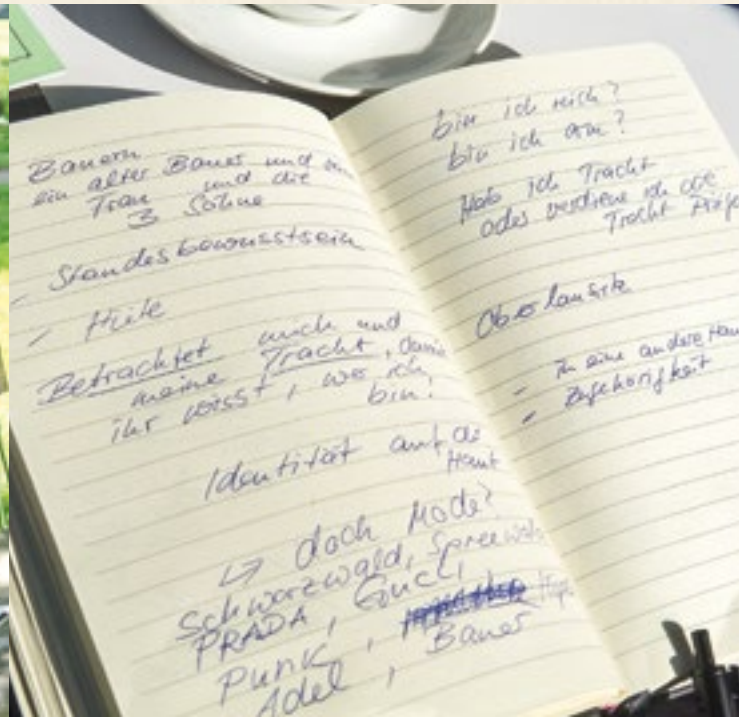 Bauern
ein alter Bauer und
Frau und die
3 Söhne
- Standesbewusstsein
- Hüte
Betrachtet mich und
meine Tracht, damit
ihr wisst, wer ich
bin!
Identität auf der
Haut
↳ doch Mode?
Schwarzwald, Spreewald
PRADA, Gucci,
Punk,
Adel, Bauer
bin ich reich?
bin ich arm?
Hab ich Tracht
oder verdiene ich die
Tracht
Oberlausitz
- In eine andere Haut
- Zugehörigkeit